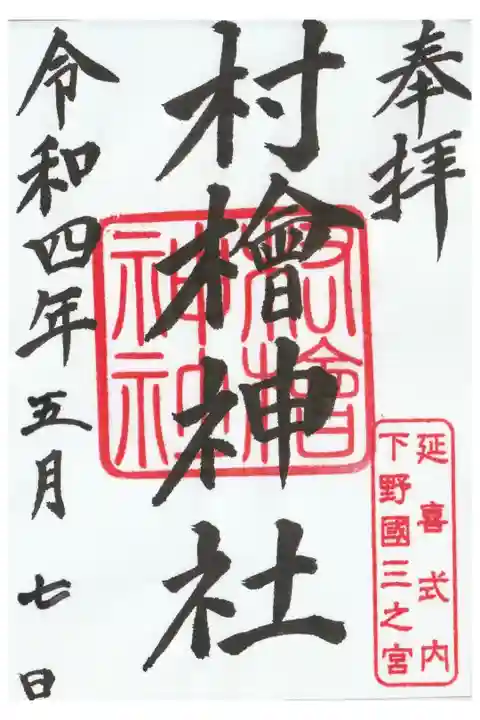 奉拝
延喜式内
下野國三之宮
村檜神社
村檜
神社
令和四年五月七日